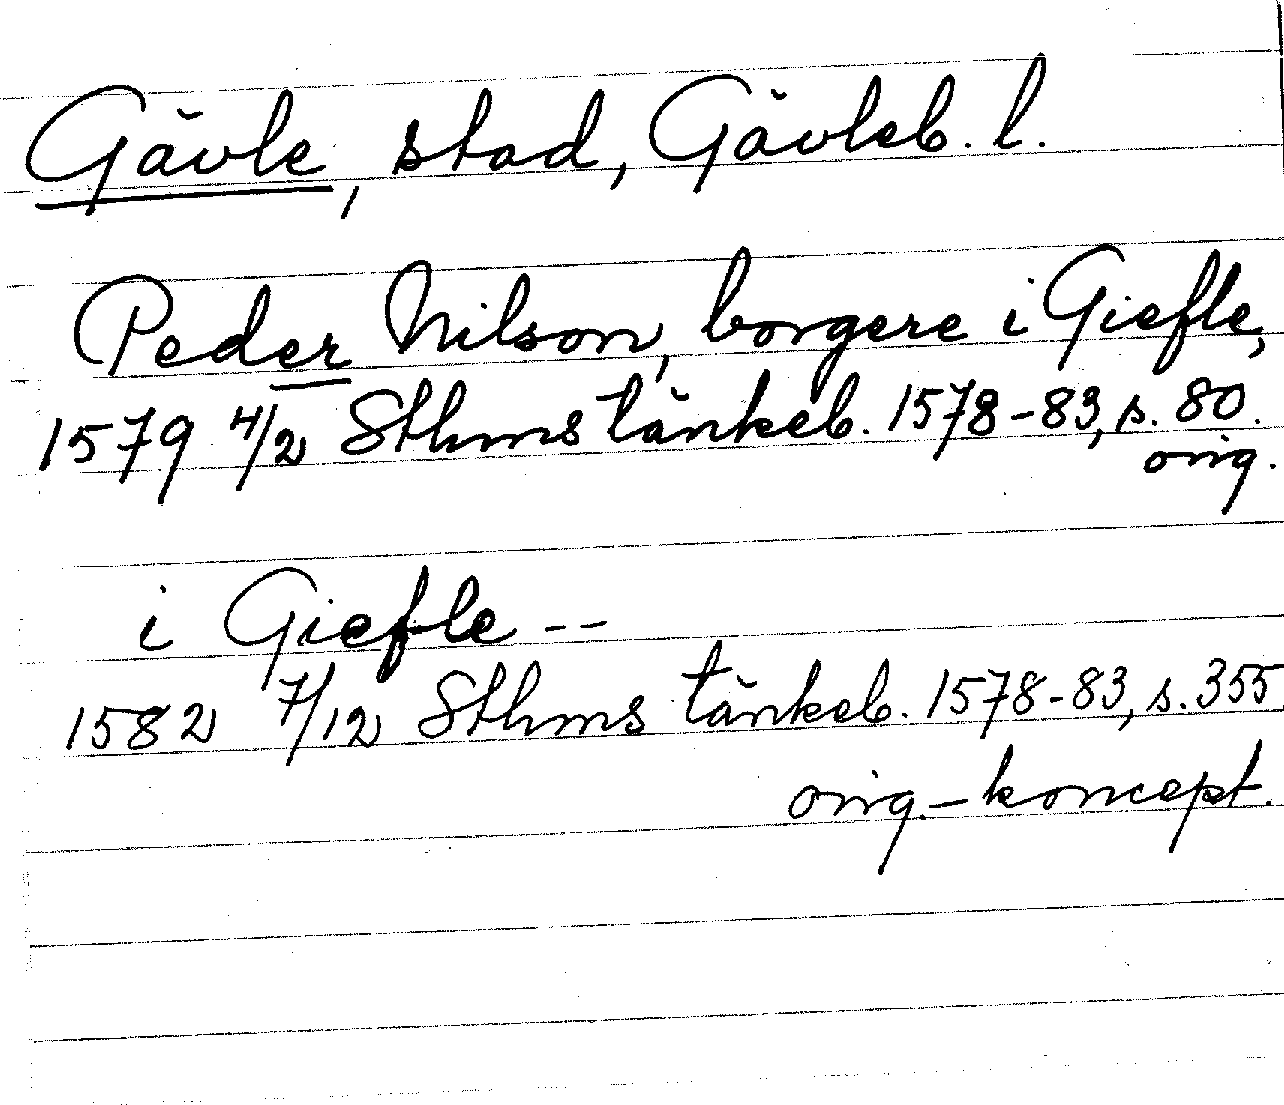 Gävle, stad, Gävleb. l.
Peder Nilson, borgere i Giefle,
1579 4/2 Sthms tänkeb. 1578-83, s. 80.
orig.
i Giefle --
1582 7/12 Sthms tänkeb. 1578-83, s. 355
orig.-koncept.